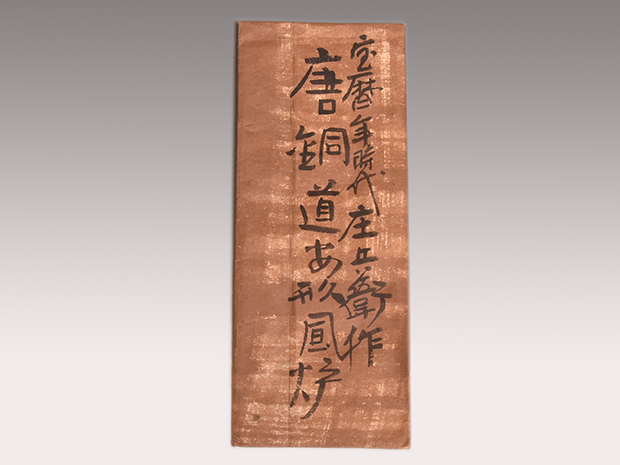 宝暦年時代 庄兵衛作
唐銅道安形風炉